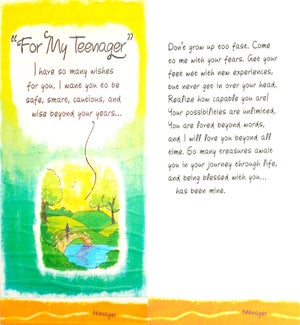 "For My Teenager"
I have so many wishes
for you. I want you to be
safe, smart, cautious, and
wise beyond your years...
teenager
Don't grow up too fast. Come
to me with your fears. Get your
feet wet with new experiences,
but never get in over your head.
Realize how capable you are!
Your possibilities are unlimited.
You are loved beyond words,
and I will love you beyond all
time. So many treasures await
you in your journey through life,
and being blessed with you...
has been mine.
teenager